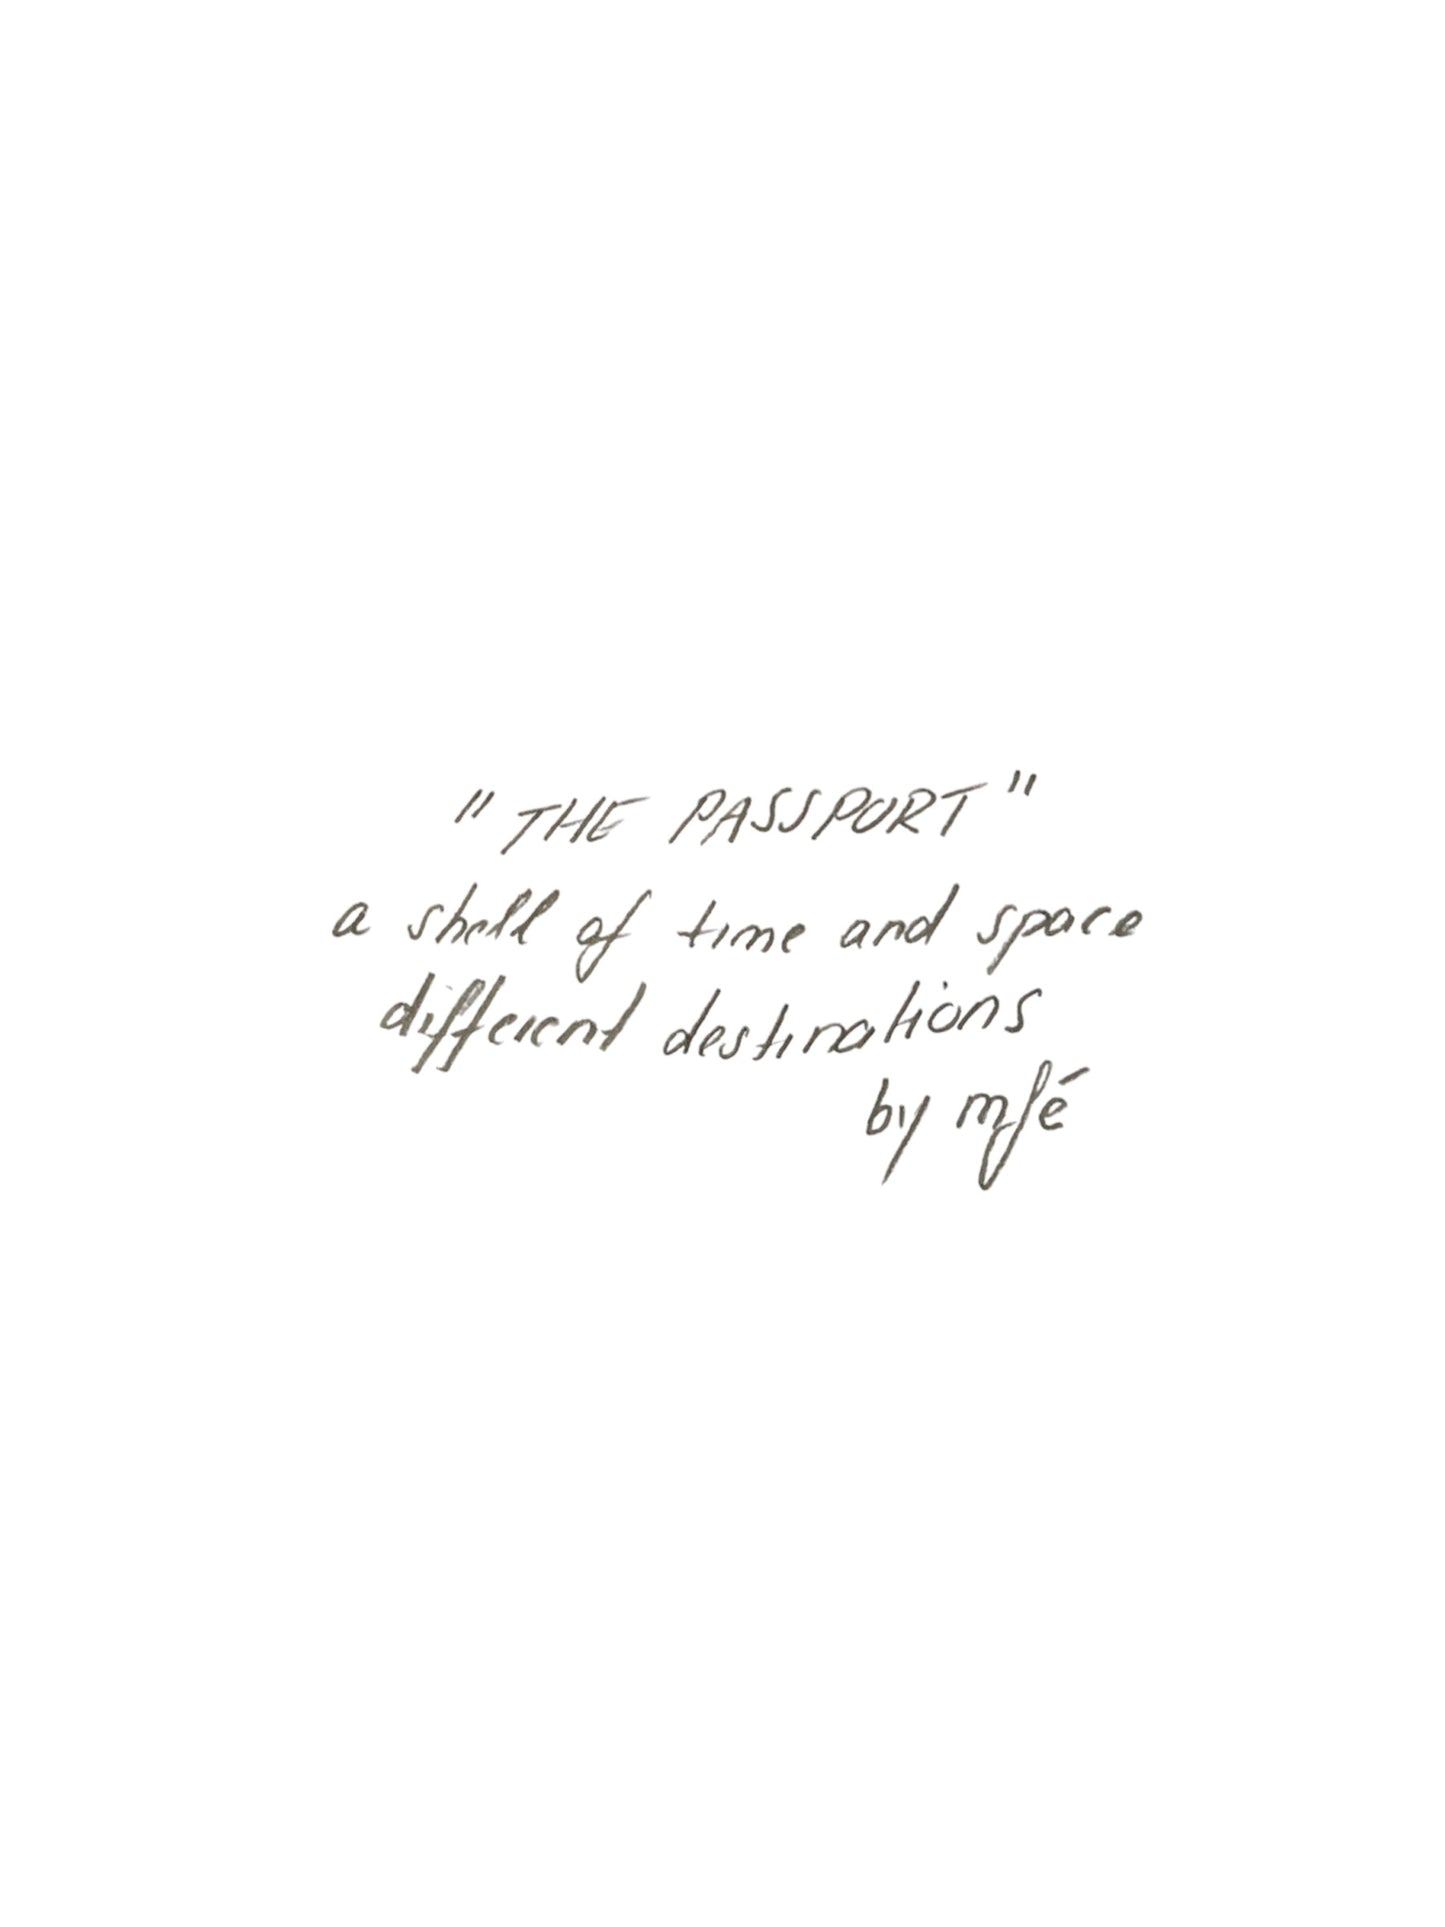 "THE PASSPORT"
a shell of time and space
different destinations
by mfé